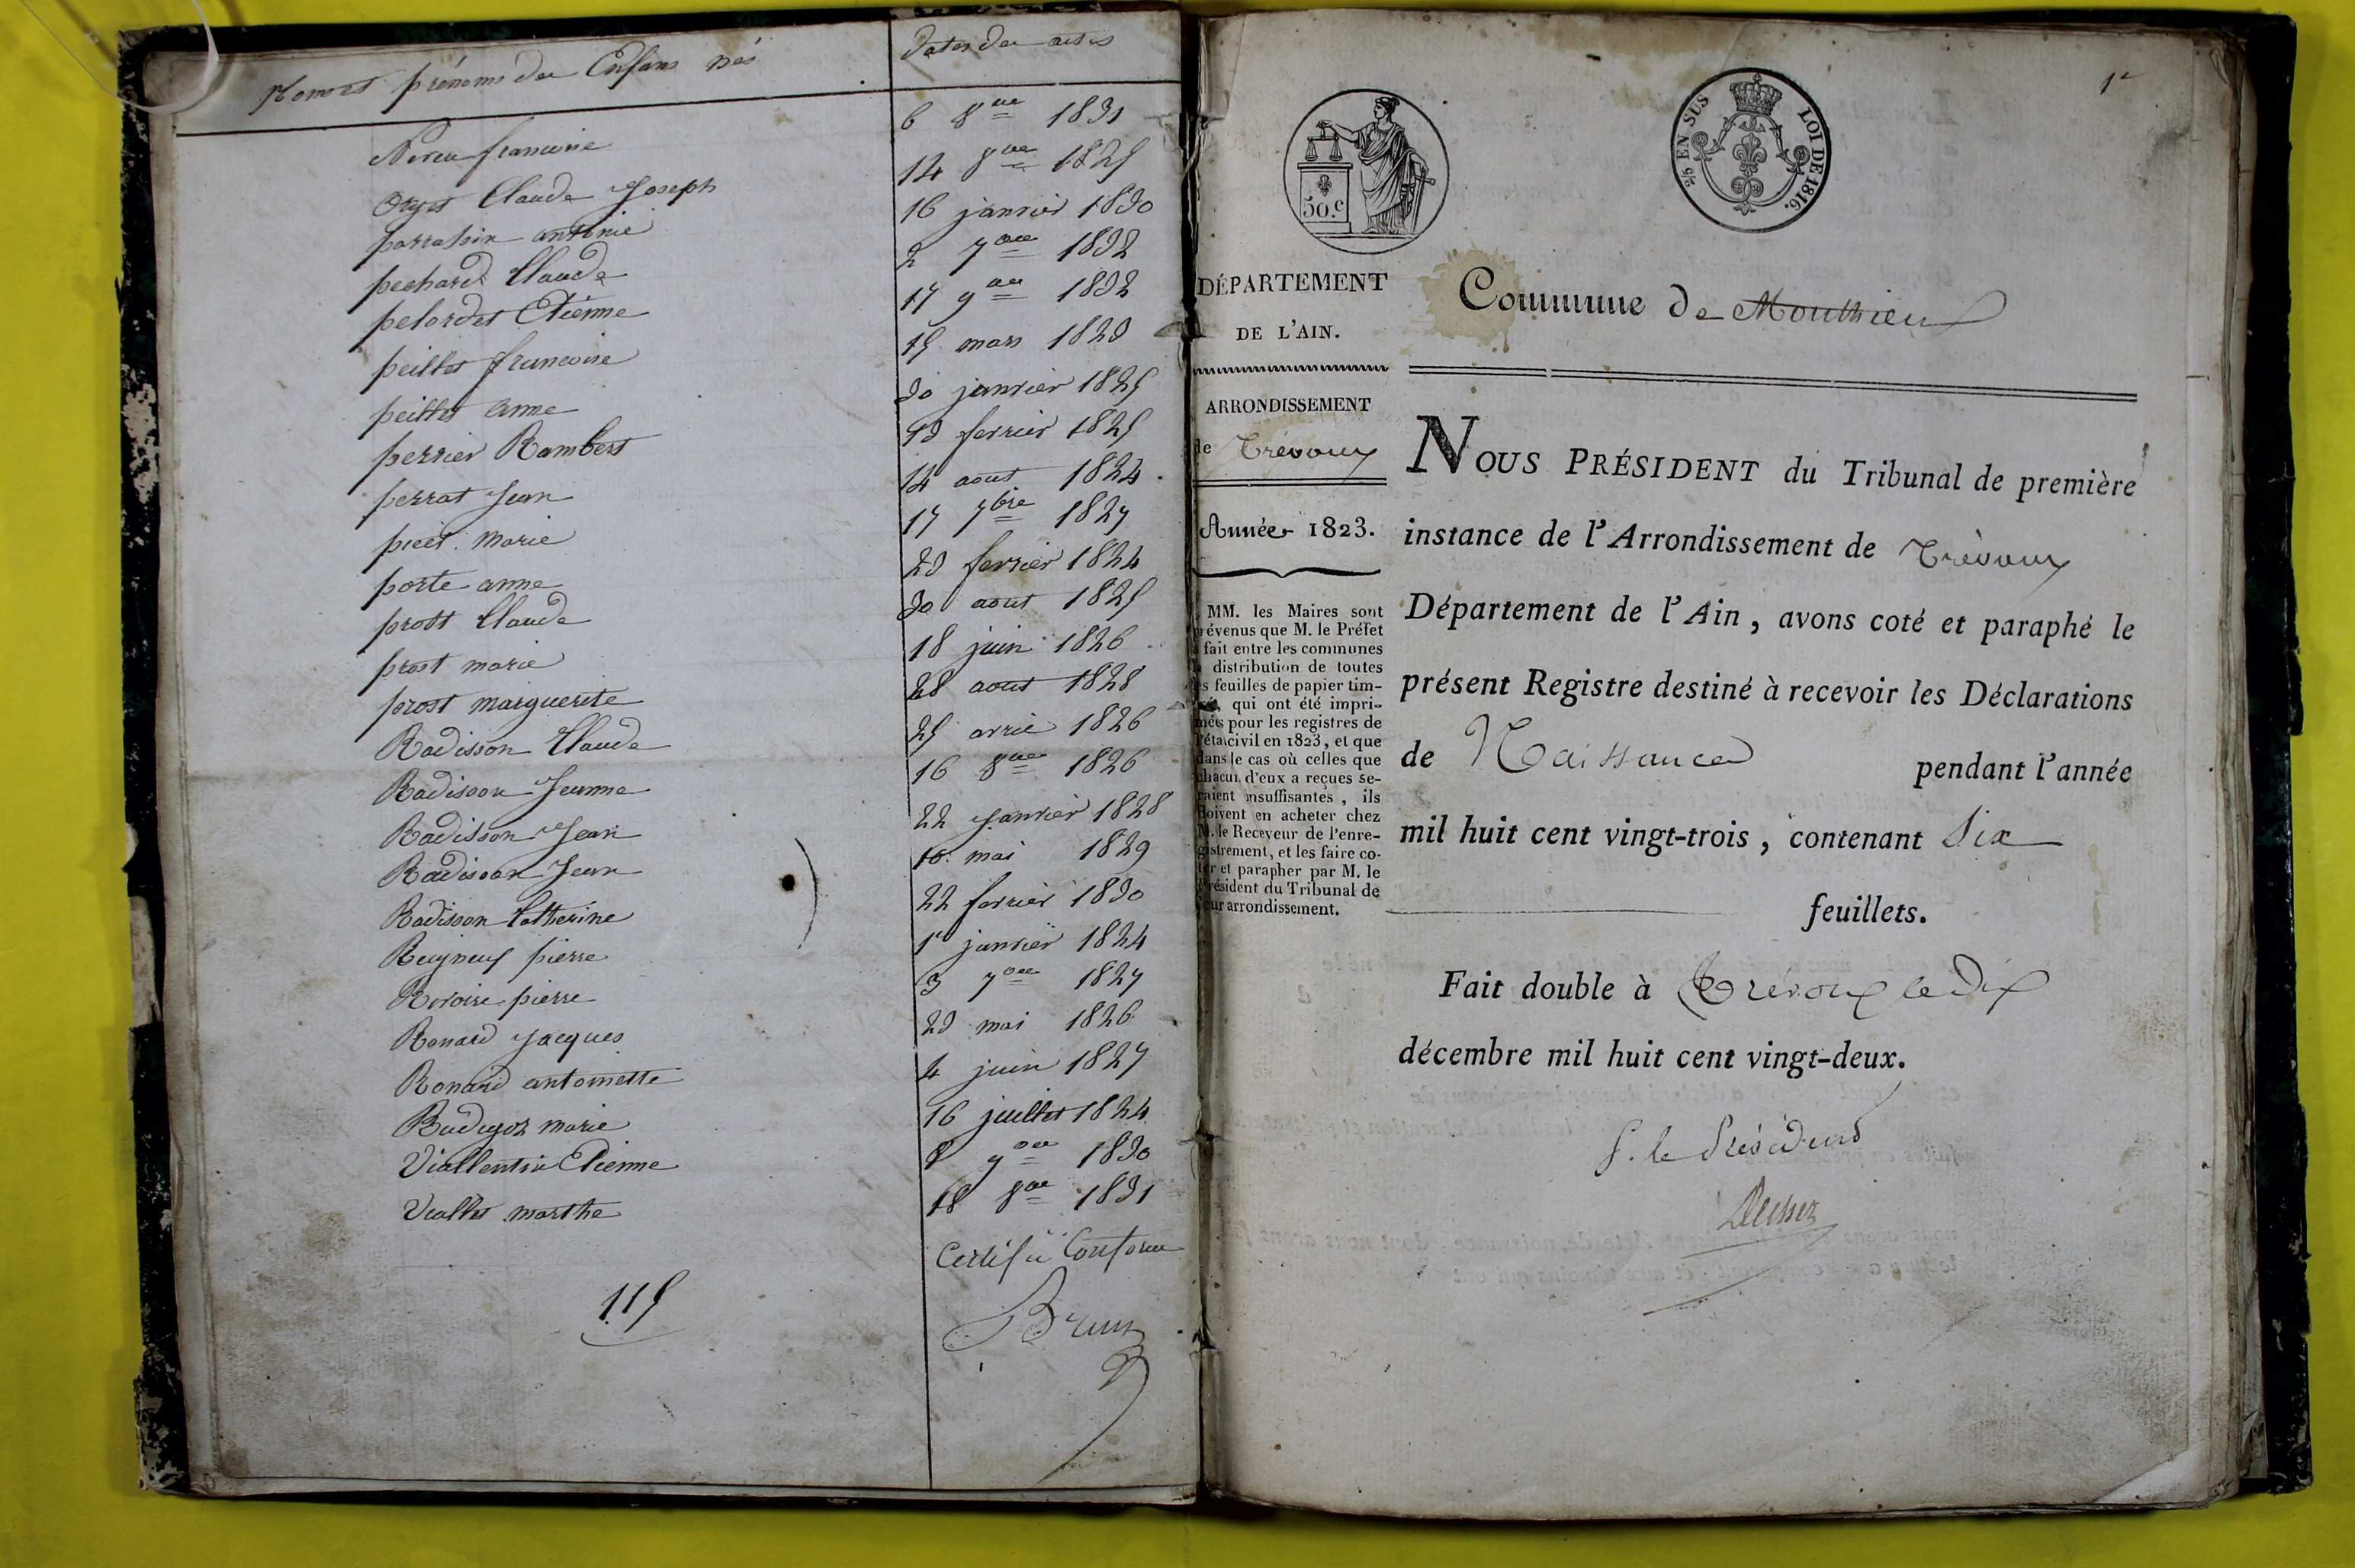 Noms et prénoms des Enfans nés
dates des actes
françoise 6 8bre 1831
Claude Joseph 14 8bre 1825
antoine 16 janvier 1830
pechard Claude 2 7bre 1832
pelordet Etienne 17 9bre 1832
peillet françoise 15 mars 1823
peillet anne 30 janvier 1825
perrier Rambert 13 fevrier 1825
perrat Jean 14 aout 1824
marie 17 7bre 1827
porte anne 23 fevrier 1824
prost Claude 30 aout 1825
prost marie 18 juin 1826
prost marguerite 28 aout 1828
Radisson Claude 25 avril 1826
Radisson Jeanne 16 8bre 1826
Radisson Jean 22 Janvier 1828
Radisson Jean 10 mai 1829
Radisson Catherine 22 fevrier 1830
pierre 1er janvier 1824
Revoire pierre 3 7bre 1827
Renard Jacques 23 mai 1826
Renard antoinette 4 juin 1827
marie 16 juillet 1824
Etienne 9bre 1830
Viallet marthe 18 8bre 1831
Certifié Conforme
115
Brun
1er
50.c
2/5 EN SUS
LOI DE 1816.
DÉPARTEMENT
DE L'AIN.
ARRONDISSEMENT
de Trévoux
Année 1823.
MM. les Maires sont
prévenus que M. le Préfet
a fait entre les communes
la distribution de toutes
les feuilles de papier tim-
bré, qui ont été impri-
mées pour les registres de
l'état civil en 1823, et que
dans le cas où celles que
chacun d'eux a reçues se-
raient insuffisantes, ils
doivent en acheter chez
M. le Receveur de l'enre-
gistrement, et les faire co-
ter et parapher par M. le
Président du Tribunal de
leur arrondissement.
Commune de Monthieux
NOUS PRÉSIDENT du Tribunal de première
instance de l'Arrondissement de Trévoux
Département de l'Ain, avons coté et paraphé le
présent Registre destiné à recevoir les Déclarations
de Naissance pendant l'année
mil huit cent vingt-trois, contenant Six
feuillets.
Fait double à Trévoux le dix
décembre mil huit cent vingt-deux.
P. le Président